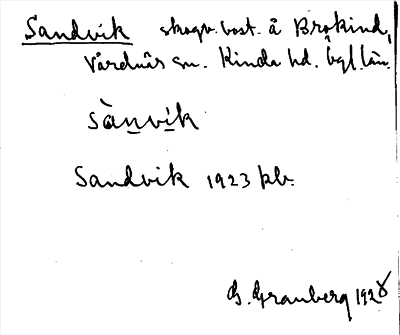 Sandvik skogv. bost. å Brokind,
Vårdnäs sn. Kinda hd. Ögl. län.
sànvik
Sandvik 1923 kb.
G. Granberg 1928